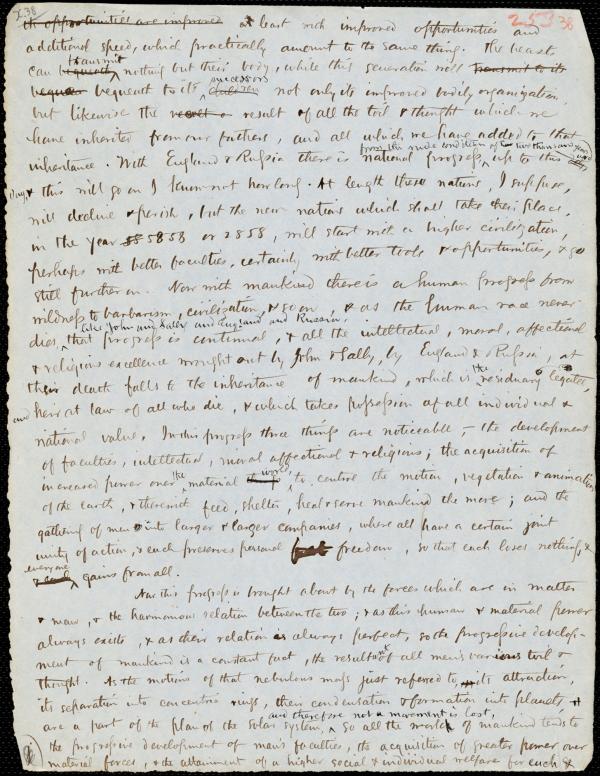 X.38
253 38
th opportunities are improved at least with improved opportunities and
additional speed, which practically amount to the same thing. The beast
can bequeath transmit nothing but their body, while this generation will transmit to its
bequea bequeath to its children successors not only its improved bodily organization,
but likewise the result of all the toil & thought which we
have inherited from our fathers, and all which we have added to that
inheritance. With England & Russia there is national progress, from the rude condition of two thousand years ago up to this
day, & this will go on I know not how long. At length these nations, I suppose,
will decline & perish, but the new nations which shall take their place,
in the year 5858 or 2858, will start with a higher civilization,
perhaps with better faculties, certainly with better tools & opportunities, & go
still further on. Now with mankind there is a human progress from
wildness to barbarism, civilization, & so on, & as the human race never
dies, like John and Sally and England and Russia, that progress is continual, & all the intellectual, moral, affectional
& religious excellence wrought out by John & Sally, by England & Russia, at
their death falls to the inheritance of mankind, which is the residuary legatee,
and heir at law of all who die, & which takes possession of all individual &
national value. In this progress three things are noticeable, – the development
of faculties, intellectual, moral affectional & religious; the acquisition of
increased power over the material world, to control the motion, vegetation & animation
of the earth, & therewith feed, shelter, heal & serve mankind the more; and the
gathering of men into larger & larger companies, where all have a certain joint
unity of action, & each preserves personal freedom, so that each loses nothing, &
& each everyone gains from all.
Now this progress is brought about by the forces which are in matter
& man, & the harmonious relation between the two; & as this human & material power
always exists, & as their relation is always perfect, so the progressive develop-
ment of mankind is a constant fact, the resultant of all men's various toil &
thought. As the motions of that nebulous mass just referred to, its attraction,
its separation into concentric rings, their condensation & formation into planets,
are a part of the plan of the Solar System, and therefore not a movement is lost, so all the work of mankind tends to
the progressive development of man's faculties, the acquisition of greater power over
material forces, & the attainment of a higher social & individual welfare for each &